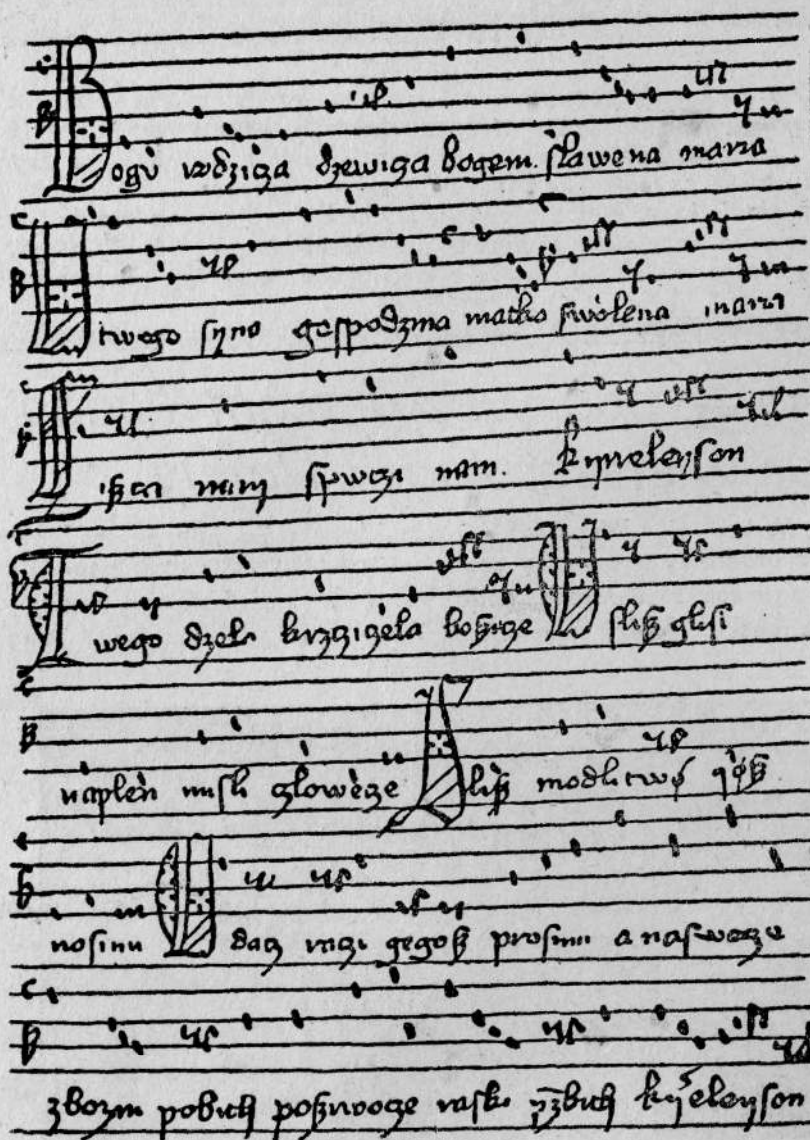 Bogu rodziça dzewiça bogem slawena maria
twego syna gospodzina matko swolena maria
nam spwczi nam. kyrieleyson
Twego dzela krzcziczela bozicze Uslisz glosi
naplen misli człowecze Slisz modlitwø iøsz
nosimi Odacz raczi gegosz prosimi a naswecze
zbozni pobith poszwocze raski przebith kyrieleyson